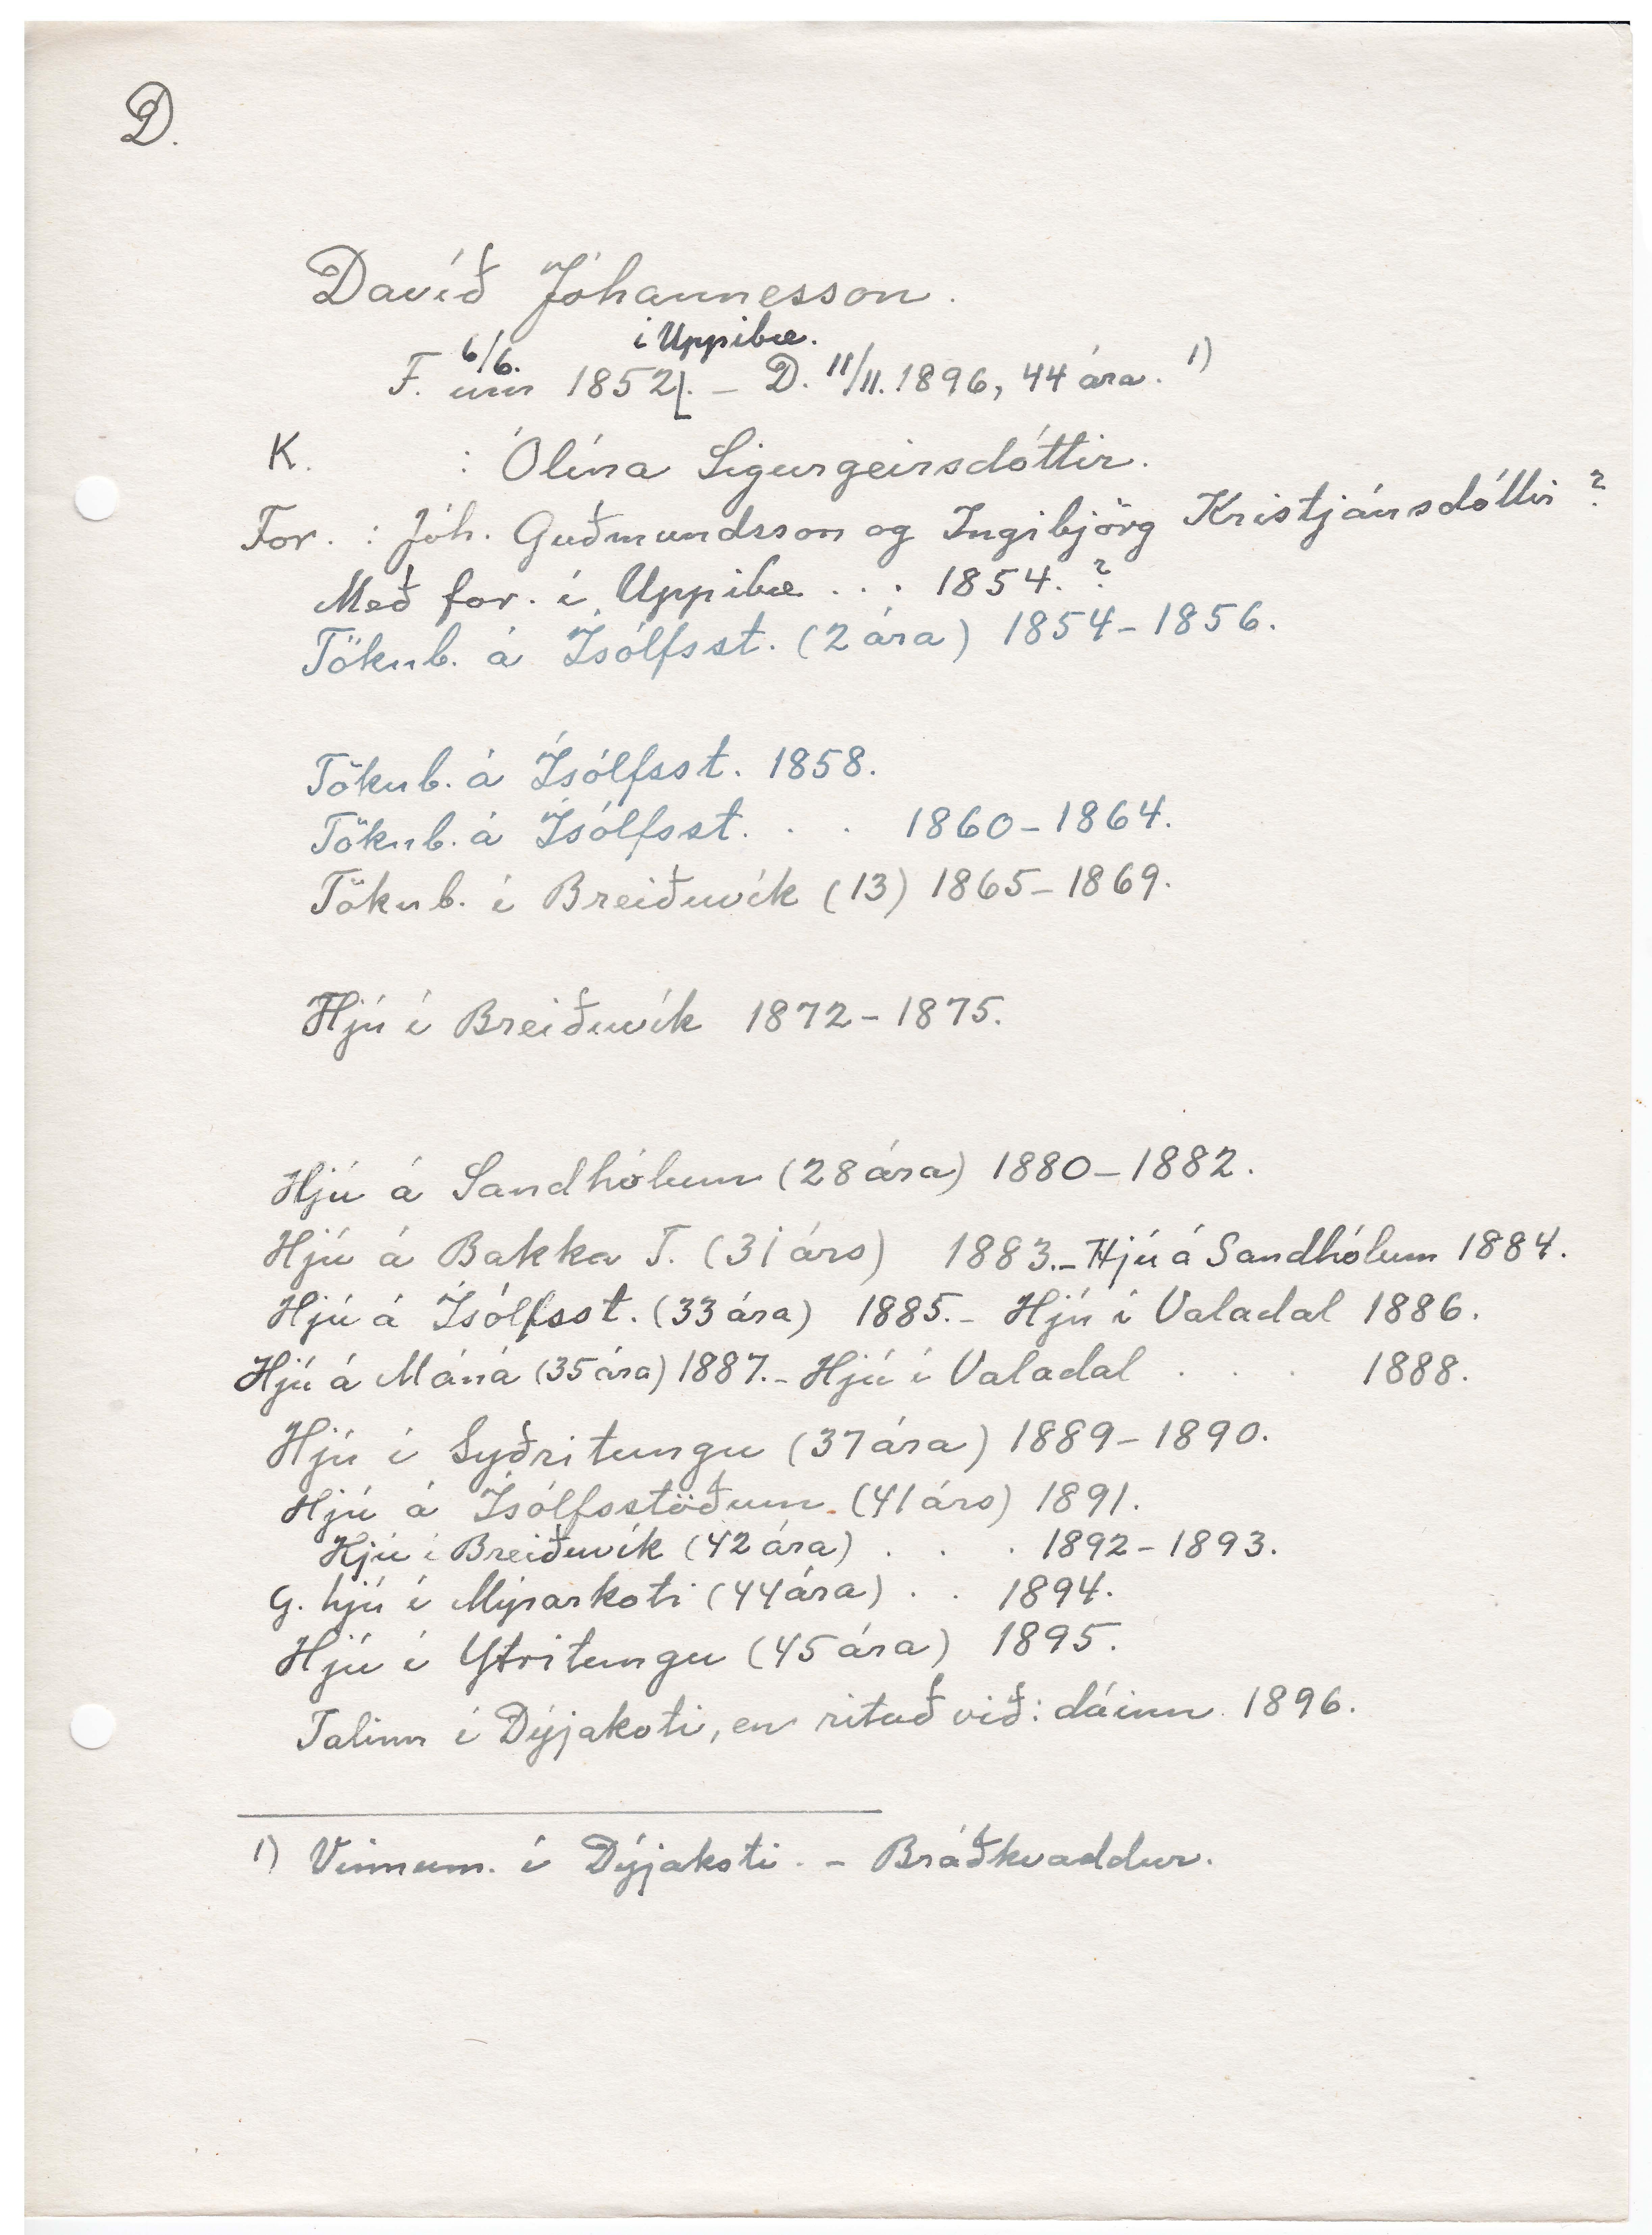 D.
Davíð Jóhannesson.
6/6. í Uppibæ.
F. um 1852. – D. 11/11. 1896, 44 ára. 1)
K. : Ólína Sigurgeirsdóttir.
For. : Jóh. Guðmundsson og Ingibjörg Kristjánsdóttir ?
Með for. í Uppibæ . . . 1854. ?
Tökub. á Ísólfsst. (2 ára) 1854–1856.
Tökub. á Ísólfsst. 1858.
Tökub. á Ísólfsst. . . 1860–1864.
Tökub. í Breiðuvík (13) 1865–1869.
Hjú í Breiðuvík 1872–1875.
Hjú á Sandhólum (28 ára) 1880–1882.
Hjú á Bakka T. (31 árs) 1883. – Hjú á Sandhólum 1884.
Hjú á Ísólfsst. (33 ára) 1885. – Hjú í Valadal 1886.
Hjú á Máná (35 ára) 1887. – Hjú í Valadal . . . 1888.
Hjú í Syðritungu (37 ára) 1889–1890.
Hjú á Ísólfsstöðum (41 árs) 1891.
Hjú í Breiðuvík (42 ára) . . . 1892–1893.
G. hjú í Mýrarkoti (44 ára) . . 1894.
Hjú í Ytritungu (45 ára) 1895.
Talinn í Dýjakoti, en ritað við: dáinn 1896.
1) Vinnum. í Dýjakoti. – Bráðkvaddur.